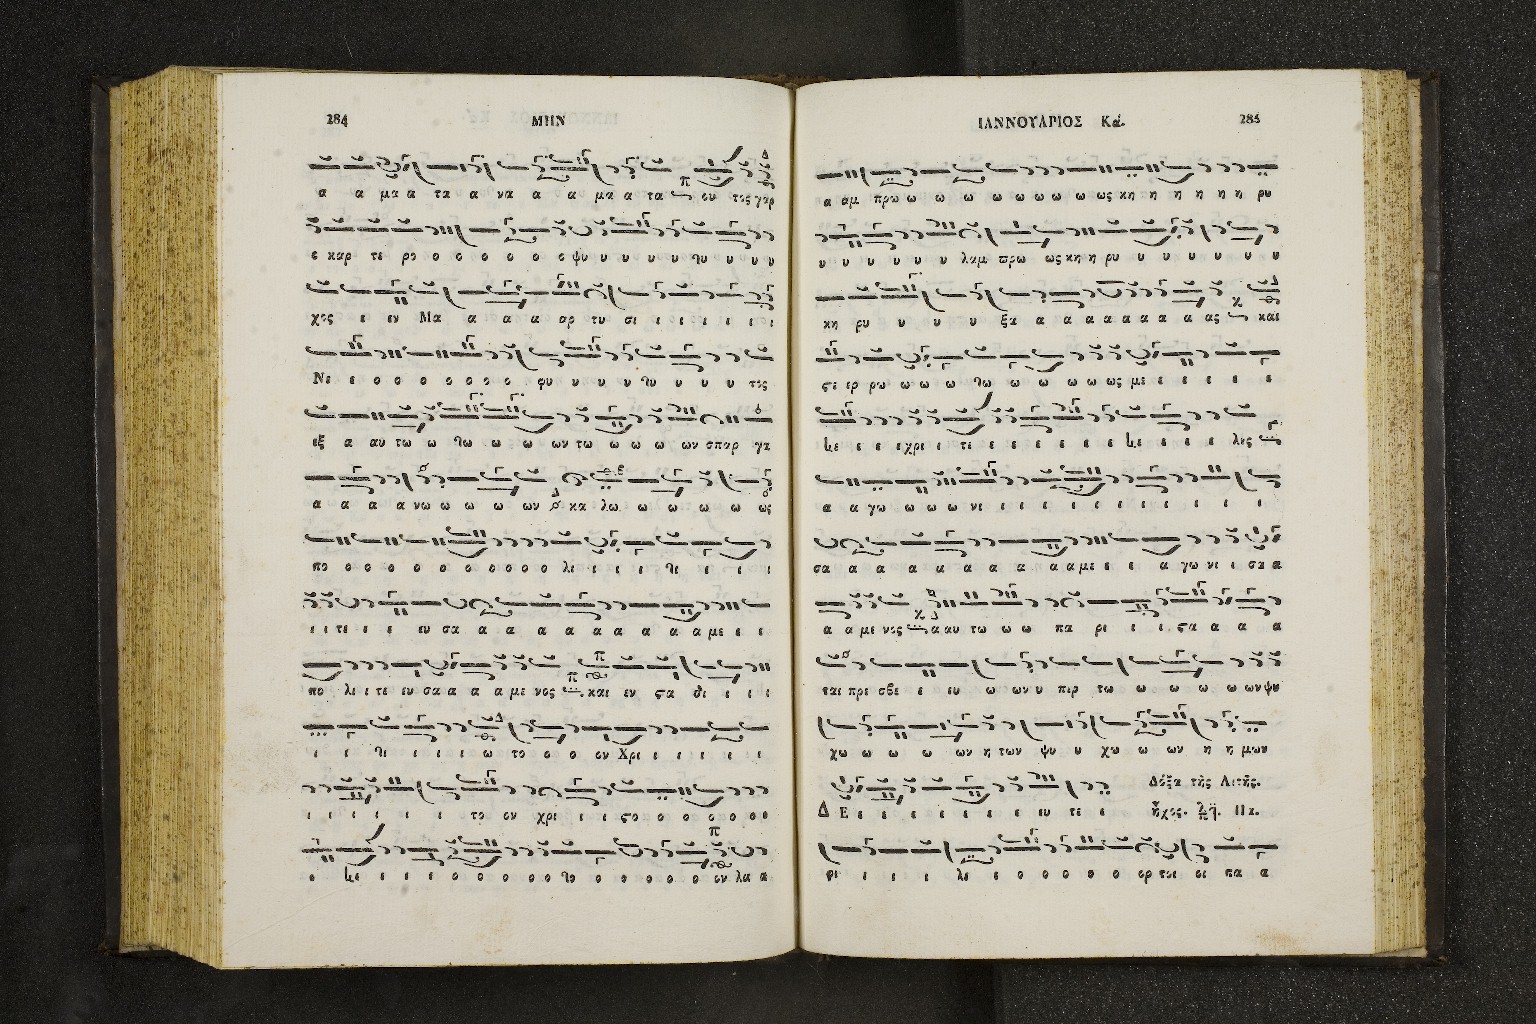 284 ΜΗΝ
α α μα α τα α να α α μα α τα ου τος γαρ
ε καρ τε ρο ο ο ο ο ο ο ψυ υ υ υ υ υ υ υ
χος ε εν Μα α α α αρ τυ σι ι ι ι ι ι ι
Νε ε ο ο ο ο ο ο ο φυ υ υ υ υ υ υ τος
εξ α αυ τω ω ω ω ω ων τω ω ω ω ων σπαρ γα
α α α α νω ω ω ω ων κα λω ω ω ω ω ως
πο ο ο ο ο ο ο ο ο ο λι ι ι ι ι ι ι
ι ι τε ε ε ευ σα α α α α α α α α α με ε ε
πο λι ι τε ευ σα α α α με νος και εν στα δι ι ι ι
ι ι ι ι ι ι ω το ο ο ον Χρι ι ι ι ι ι
ι ι ι ι ι ι το ον χρι ι ι στο ο ο ο ο ο ο
ε ε ε ε ο ο ο ο ο ο ο ο ο ο ον λα α
ΙΑΝΝΟΥΑΡΙΟΣ Κά. 285
α αμ πρω ω ω ω ω ω ω ω ω ως κη η η η η η ρυ
υ υ υ υ υ υ λαμ πρω ως κη η ρυ υ υ υ υ υ υ
κη ρυ υ υ υ υ ξα α α α α α α α ας και
στε ερ ρω ω ω ω ω ω ω ω ω ως με ε ε ε ε ε
ε ε ε χρι ι τε ε ε ε ε ε ε ε ε ε λος
α α γω ω ω ω νι ι ι ι ι ι ι ι ι ι ι ι
σα α α α α α α α α α με ε ε α γω νι ι σα α
α α με νος α αυ τω ω ω πα ρι ι ι στα α α α
ται πρε σβε ε ευ ω ων υ περ τω ω ω ω ω ων ψυ
χω ω ω ω ων η των ψυ υ χω ω ων η η μων
Δόξα τῆς Λιτῆς.
Δ Ε ε ε ε ε ε ε ευ τε ε ἦχος. Πα.
φι ι ι ι λε ε ο ο ο ο ο ορ τοι οι πα α